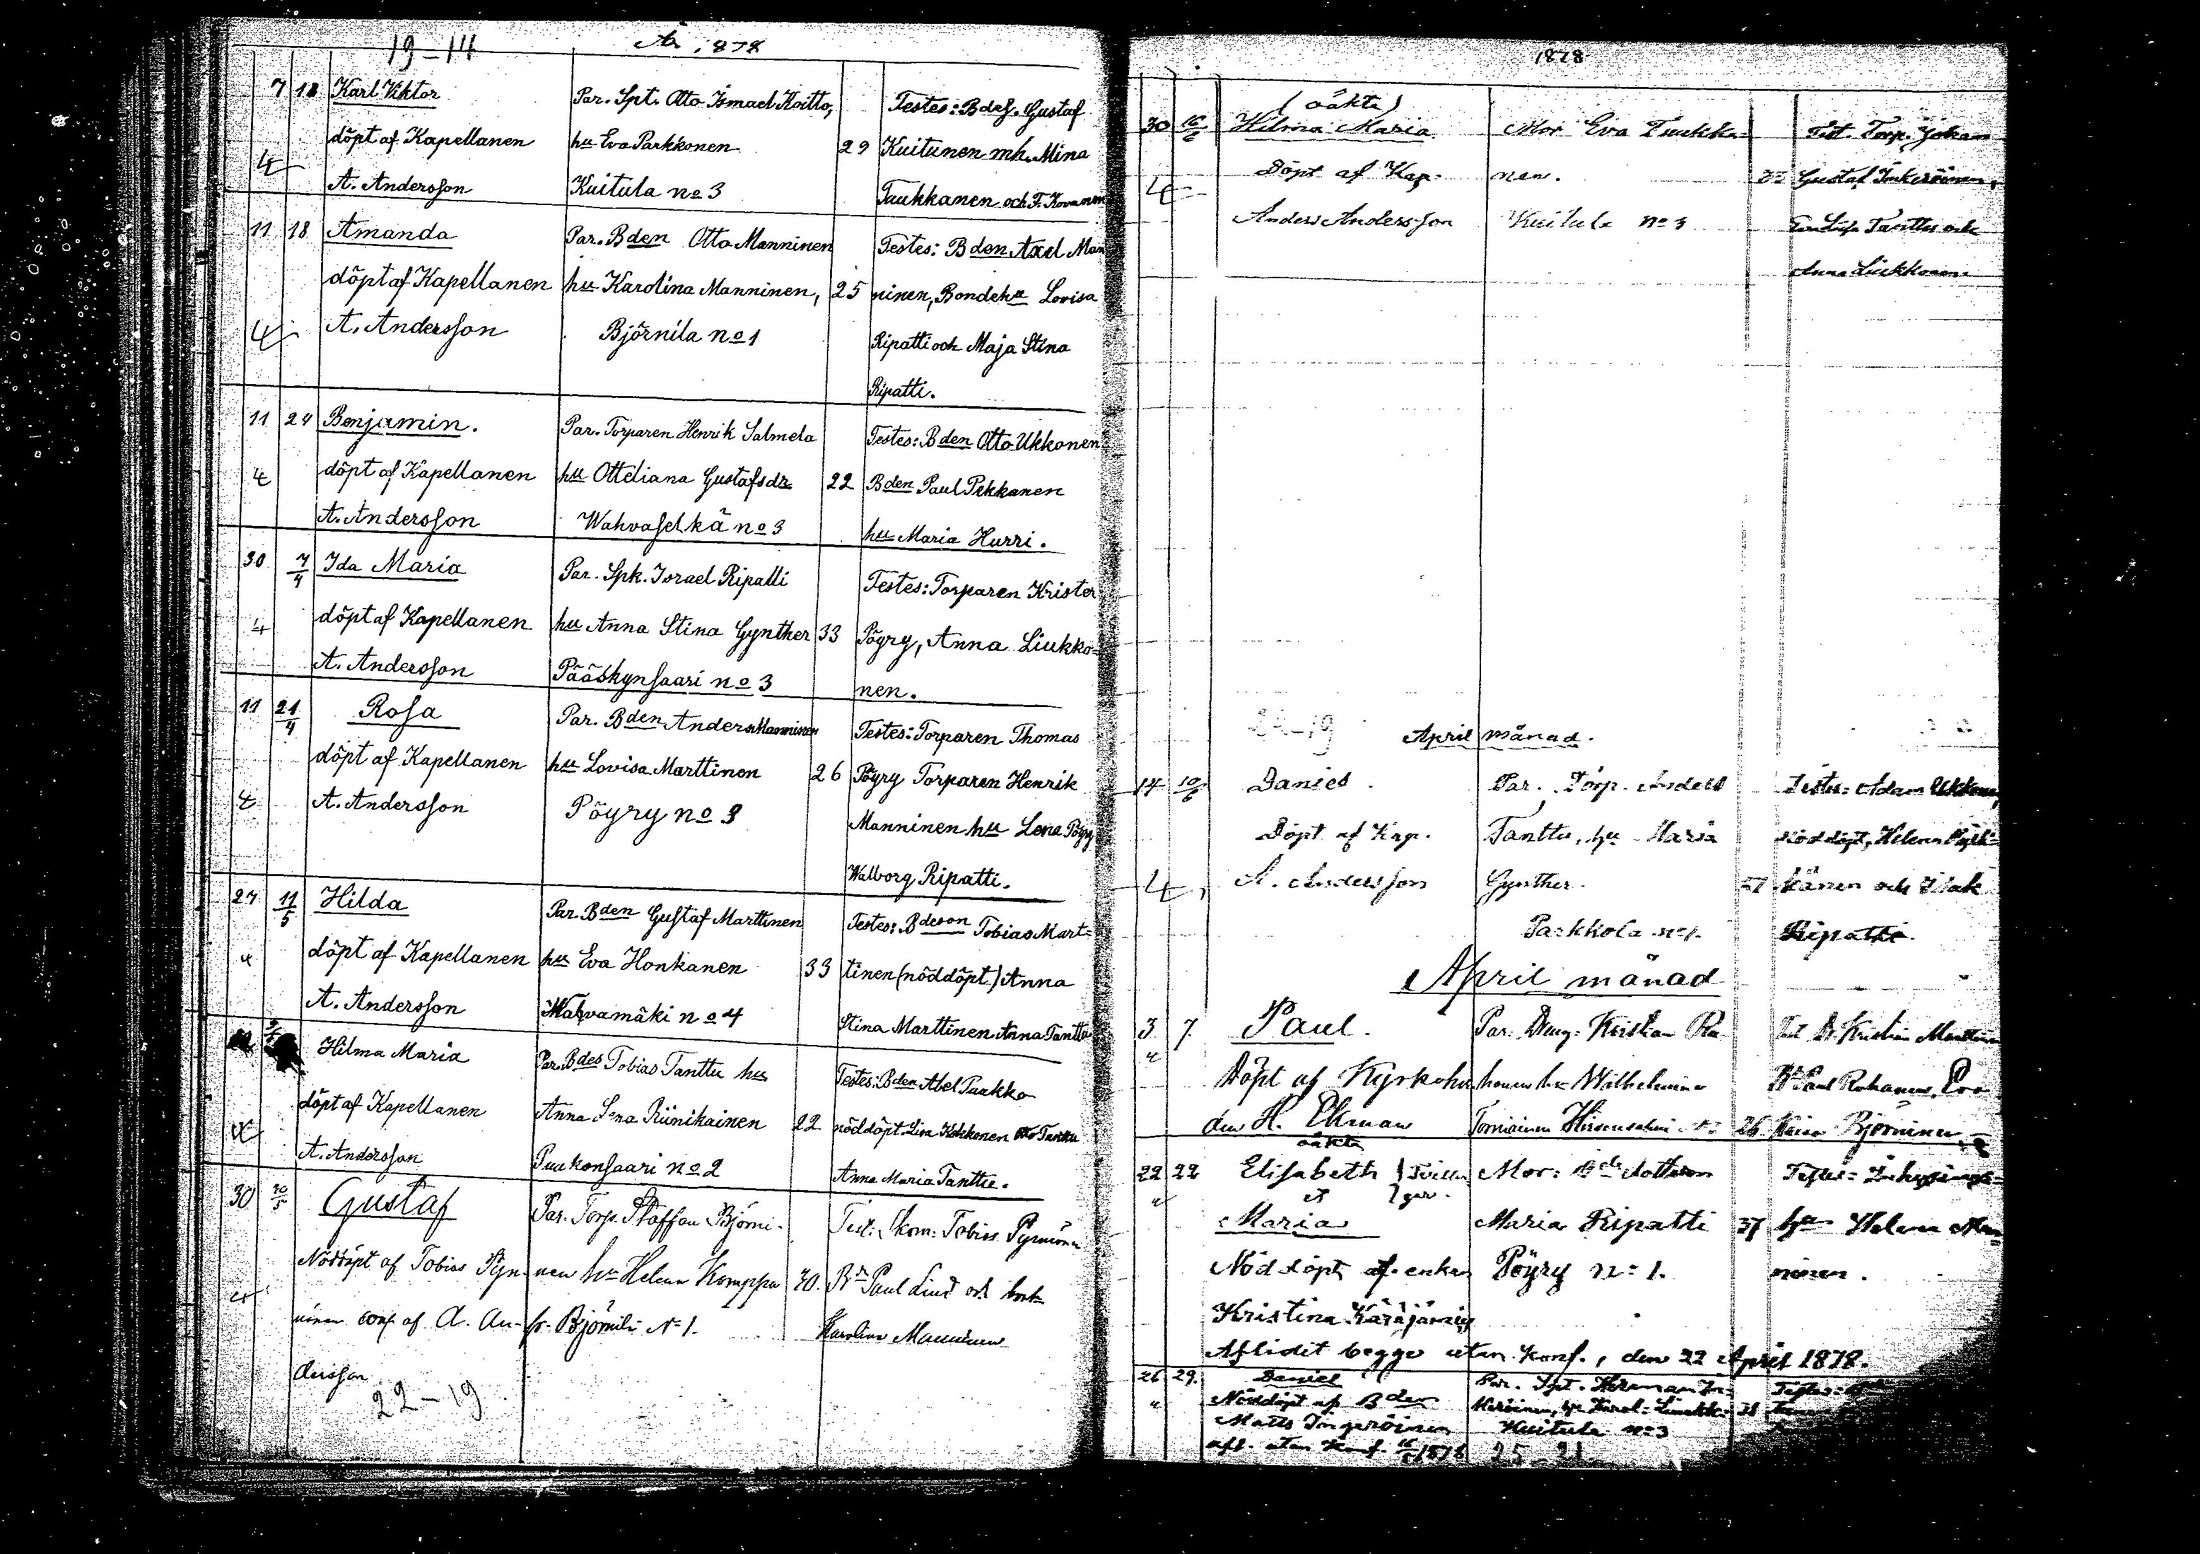 19-14
År 1878
7 18 Karl Viktor Par. Spt. Otto Ismael Koitto, Testes: Bdes. Gustaf
döpt af Kapellanen hu Eva Parkkonen 29 Kuitunen mh. Mina
4 A. Andersson Kuitula no 3 Tuukkanen och F.
11 18 Amanda Par. Bden Otto Manninen Testes: Bden Axel Man
döpt af Kapellanen hu Karolina Manninen, 25 ninen, Bondehu Lovisa
4 A. Andersson Björnila no 1 Ripatti och Maja Stina
Ripatti.
11 24 Benjamin. Par. Torparen Henrik Salmela Testes: Bden Otto Ukkonen
4 döpt af Kapellanen hu Otteliana Gustafsdr 22 Bden Paul Pekkanen
A. Andersson Wahvaselkä no 3 hu Maria Hurri.
30 7/4 Ida Maria Par. Spk. Israel Ripatti Testes: Torparen Krister
4 döpt af Kapellanen hu Anna Stina Gynther 33 Pöyry, Anna Liukko=
A. Andersson Pääskynsaari no 3 nen.
11 21/4 Rosa Par. Bden Anders Manninen Testes: Torparen Thomas
döpt af Kapellanen hu Lovisa Marttinen 26 Pöyry Torparen Henrik
4 A. Andersson Pöyry no 3 Manninen hu Lena Pöyry
Walborg Ripatti.
27 11/5 Hilda Par. Bden Gustaf Marttinen Testes: Bdeson Tobias Mart=
döpt af Kapellanen hu Eva Honkanen 33 tinen (nöddöpt) Anna
A. Andersson Wahvamäki no 4 Stina Marttinen Anna Tanttu
Hilma Maria Par. Bdes Tobias Tanttu hu Testes: Bden Abel Paakko
döpt af Kapellanen Anna Lena Riinikainen 22 nöddöpt Lisa Kokkonen Tanttu
A. Andersson Puukonsaari no 2 Anna Maria Tanttu.
30 Gustaf Par. Torp. Staffan Björni- Test: Skom. Tobias Pynnönen
Nöddöpt af Tobias Pyn- nen hu Helena Komppa 30. Bn Paul Lind och
nönen conf. af A. An- fr. Björnila No 1. Karolina Manninen
dersson
22-19
1878
(oäkta)
30 16/6 Hilma Maria Mor Eva Tuukka- Test. Torp. Johan
4 Döpt af Kap. nen. Gustaf Inkeröinen,
Anders Andersson Kuitula no 3 Tanttu och
Anna Liukkonen.
22-19 April månad.
14 10/6 Daniel Par. Torp. Anders Testes: Adam Ukkonen,
Döpt af Kap. Tanttu, hu Maria nöddöpt, Helena
4 A. Andersson Gynther. 27 känen och Isak
Parkkola no 1. Ripatti.
April månad
3 7 Paul. Par. Kristian Ra- Kristian Marttinen
Döpt af Kyrkoher- honen hu Wilhelmina Paul Rahonen, Eva
den H. Ekman Torniainen Hirvensalmi 26 Björninen
oäkta
22 22 Elisabeth } Tvillin Mor: Bdedottern Testes: Inhysings=
et } gar.
Maria Maria Ripatti 37 hu Helena Man
Nöddöpt af enkan Pöyry no 1. ninen.
Kristina Käräjämies
Aflidit begge utan konf., den 22 April 1878.
26 29. Daniel Par. Spt. Herman In-
Nöddöpt af Bden
Matts Ingeröinen Kuitula no 3
afl. utan konf. 1878 25-21